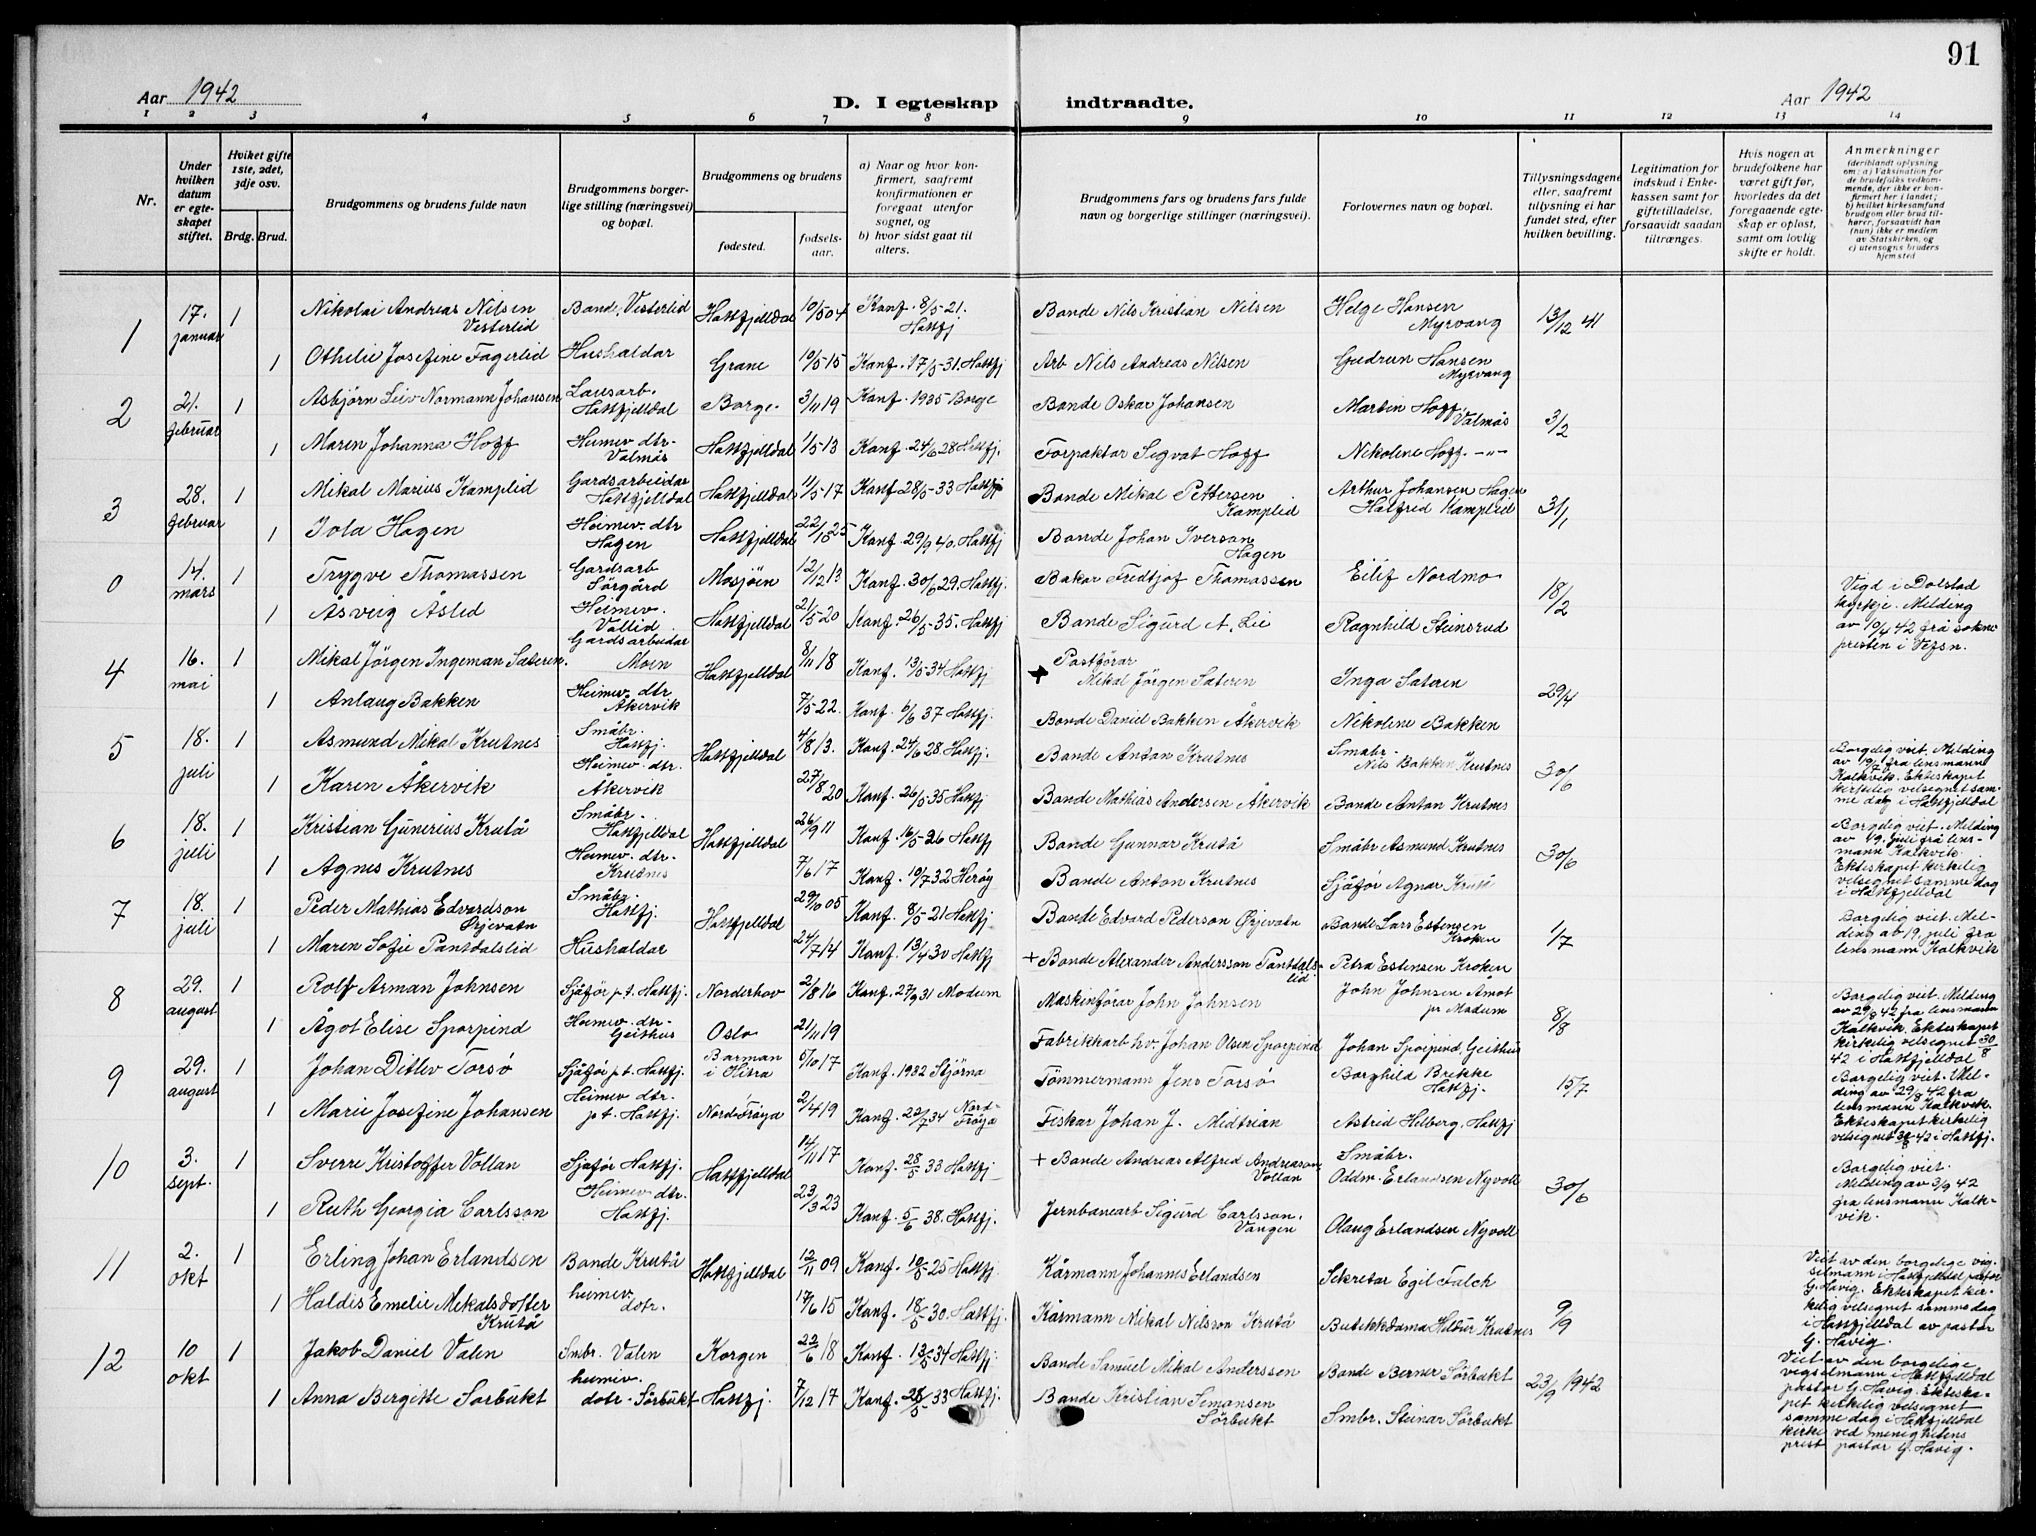 91
Aar 1942
D. I egteskap indtraadte.
Aar 1942
1 2 3 4 5 6 7 8 9 10 11 12 13 14
Nr.
Under hvilken datum er egteskapet stiftet.
Hvilket gifte 1ste, 2det, 3dje osv.
Brdg. Brud.
Brudgommens og brudens fulde navn
Brudgommens borgerlige stilling (næringsvei) og bopæl.
Brudgommens og brudens
fødested.
fødselsaar.
a) Naar og hvor konfirmert, saafremt konfirmationen er foregaat utenfor sognet, og
b) hvor sidst gaat til alters.
Brudgommens fars og brudens fars fulde navn og borgerlige stillinger (næringsvei).
Forlovernes navn og bopæl.
Tillysningsdagene eller, saafremt tillysning ei har fundet sted, efter hvilken bevilling.
Legitimation for indskud i Enkekassen samt for giftetilladelse, forsaavidt saadan tiltrænges.
Hvis nogen av brudefolkene har været gift før, hvorledes da det foregaaende egteskap er opløst, samt om lovlig skifte er holdt.
Anmerkninger
(deriblandt oplysning om: a) Vaksination for de brudefolks vedkommende, der ikke er konfirmert her i landet; b) hvilket kirkesamfund brudgom eller brud tilhører, forsaavidt han (hun) ikke er medlem av Statskirken, og c) utensogns bruders hjemsted
1 17. januar 1 Nikolai Andreas Nilsen Vesterlid Bonde, Vesterlid Hattfjelldal 10/5 04 Konf. 8/5-21. Hattfj Bonde Nils Kristian Nilsen Helge Hansen Myrvang 13/12 41
1 Othelie Josefine Fagerlid Hushaldar Grane 10/5-15 Konf. 17/5-31. Hattfj Arb Nils Andreas Nilsen Gudrun Hansen Myrvang
2 21. februar 1 Asbjørn Leiv Normann Johansen Lausarb. Hattfjelldal Borge 3/11 19 Konf. 1935 Borge Bonde Oskar Johansen Martin Hoff, Valmås 3/2
1 Maren Johanna Hoff Heimev. dtr. Valmås Hattfjelldal 1/5-13 Konf. 24/6 28 Hattfj. Forpaktar Sigvat Hoff Nikoline Hoff -"-
3 28. februar 1 Mikal Marius Kamplid Gardsarbeidar Hattfjelldal Hattfjelldal 11/5-17 Konf 28/5-33 Hattfj Bonde Mikal Pettersen Kamplid Arthur Johansen Hagen Halfred Kamplid 31/1
1 Jola Hagen Heimev. dtr Hagen Hattfjelldal 22/10 25 Konf. 29/9 40. Hattfj Bonde Johan Iverson Hagen
0 14. mars 1 Trygve Thomassen Gardsarb Sörgård Mosjöen 12/12 13 Konf. 30/6 29. Hattfj Bakar Fredtjof Thomassen Eilif Nordmo 18/2 Vigd i Dolstad kyrkje. Melding av 10/4 42 frå soknepresten i Vefsn.
1 Åsveig Åslid Heimev. Vallid Hattfjelldal 21/5-20 Konf. 26/5-35. Hattfj Bonde Sigurd A. Lie Ragnhild Steinsrud
4 16. mai 1 Mikal Jörgen Ingeman Sæteren. Gardsarbeidar Moen Hattfjelldal 8/11 18 Konf. 13/5-34 Hattfj + Postförar Mikal Jörgen Sæteren Inga Sæteren 29/4
1 Anlaug Bakken Heimev. dtr Åkervik 7/5-22. Konf. 6/6 37 Hattfj. Bonde Daniel Bakken Åkervik Nikoline Bakken
5 18. juli 1 Asmund Mikal Krutnes Småbr. Hattfj. Hattfjelldal 4/8 13. Konf. 24/6 28. Hattfj. Bonde Anton Krutnes Småbr. Nils Bakken Krutnes 30/6 Borgelig viet. Melding av 19/7 fra lensmann Kalkvik. Ekteskapet kirkelig velsignet samme dag i Hattfjelldal
1 Karen Åkervik Heimev. dtr. Åkervik 27/8 20 Konf. 26/5-35 Hattfj Bonde Mathias Andersen Åkervik Bonde Anton Krutnes
6 18. juli 1 Kristian Gunerius Krutå Småbr. Hattfjelldal Hattfjelldal 26/9 11 Konf. 16/5-26 Hattfj Bonde Gunnar Krutå Småbr Asmund Krutnes 30/6 Borgelig viet. Melding av 19. juli frå lensmann Kalkvik. Ekteskapet kirkelig velsignet samme dag i Hattfjelldal
1 Agnes Krutnes Heimev. dtr. Krutnes 7/6 17 Konf. 10/7 32 Herøy Bonde Anton Krutnes Sjåför Agnar Krutå
7 18. juli 1 Peder Mathias Edvardson Ørjevatn Småbr. Hattfj. Hattfjelldal 29/10 05 Konf. 8/5-21 Hattfj. Bonde Edvard Pederson Ørjevatn Bonde Lars Estensen Kroken 1/7 Borgelig viet. Melding ab 19. juli fra lensmann Kalkvik
1 Maren Sofie Pantdalslid Hushaldar 24/7 14 Konf. 13/4 30 Hattfj + Bonde Alexander Andersson Pantdalslid Petra Estensen Kroken
8 29. august 1 Rolf Arman Johnsen Sjåför p.t. Hattfj. Norderhov 2/8 16 Konf. 27/9 31 Modum Maskinförar John Johnsen John Johnsen Åmot pr Modum 8/8 Borgelig viet. Melding av 29/8 42 fra lensmann Kalkvik. Ekteskapet kirkelig velsignet 30/8 42 i Hattfjelldal
1 Ågot Elise Sporpind Heimev. dtr. Geithus Oslo 21/11 19 Fabrikkarb hv. Johan Olsen Sporpind Johan Sporpind Geithus
9 29. august 1 Johan Ditlev Torsø Sjåför p.t. Hattfj. Barman i Hitra 5/10 17 Konf. 1932 Stjörna Tömmermann Jens Torsø Borghild Brekke Hattfj. 15/7 Borgelig viet. Melding av 29/8 42 fra lensmann Kalkvik. Ekteskapet kirkelig velsignet 30/8 42 i Hattfj.
1 Marie Josefine Johansen Heimev dtr. p.t. Hattfj. Nord-Fröya 2/4 19 Konf. 22/7 34 Nord-Fröya Fiskar Johan J. Midtrian Astrid Hilberg. Hattfj
10 3. sept. 1 Sverre Kristoffer Vollan Sjåför Hattfj. Hattfjelldal 14/11 17 Konf. 28/5 33 Hattfj + Bonde Andreas Alfred Andreason Vollan Småbr. Oddm. Erlandsen Nyvoll 30/6 Borgelig viet. Melding av 3/9 42 fra lensmann Kalkvik.
1 Ruth Georgia Carlsson Heimev. dtr. Hattfj. 23/3 23 Konf. 5/6 38. Hattfj. Jernbanearb Sigurd Carlsson. Vangen Olaug Erlandsen Nyvoll
11 2. okt 1 Erling Johan Erlandsen Bonde Krutå Hattfjelldal 12/11 09 Konf. 10/5 25 Hattfj. Kårmann Johannes Erlandsen Sekretar Egil Falch 9/9 Viet av den borgelige vigselmann i Hattfjelldal pastor G. Havig. Ekteskapet kirkelig velsignet samme dag i Hattfjelldal av pastor G. Havig.
1 Haldis Emelie Mikalsdotter Krutå heimev. dotr. 17/6 15 Konf. 18/5 30. Hattfj. Kårmann Mikal Nilsson Krutå Butikkdama Hildur Krutnes
12 10 okt 1 Jakob Daniel Valen Smbr. Valen Korgen 22/6 18 Konf. 13/5 34 Hattfj Bonde Samuel Mikal Anderssen Bonde Berner Sörbukt 23/9 1942 Viet av den borgelige vigselmann i Hattfjelldal pastor G. Havig. Ekteskapet kirkelig velsignet samme dag i Hattfjelldal kirke ved menighetens prest pastor G. Havig.
1 Anna Bergitte Sörbukt heimev. dotr. Sörbukt Hattfj. 7/12 17 Konf. 28/5 33 Hattfj. Bonde Kristian Simonsen Sörbukt Smbr. Steinar Sörbukt